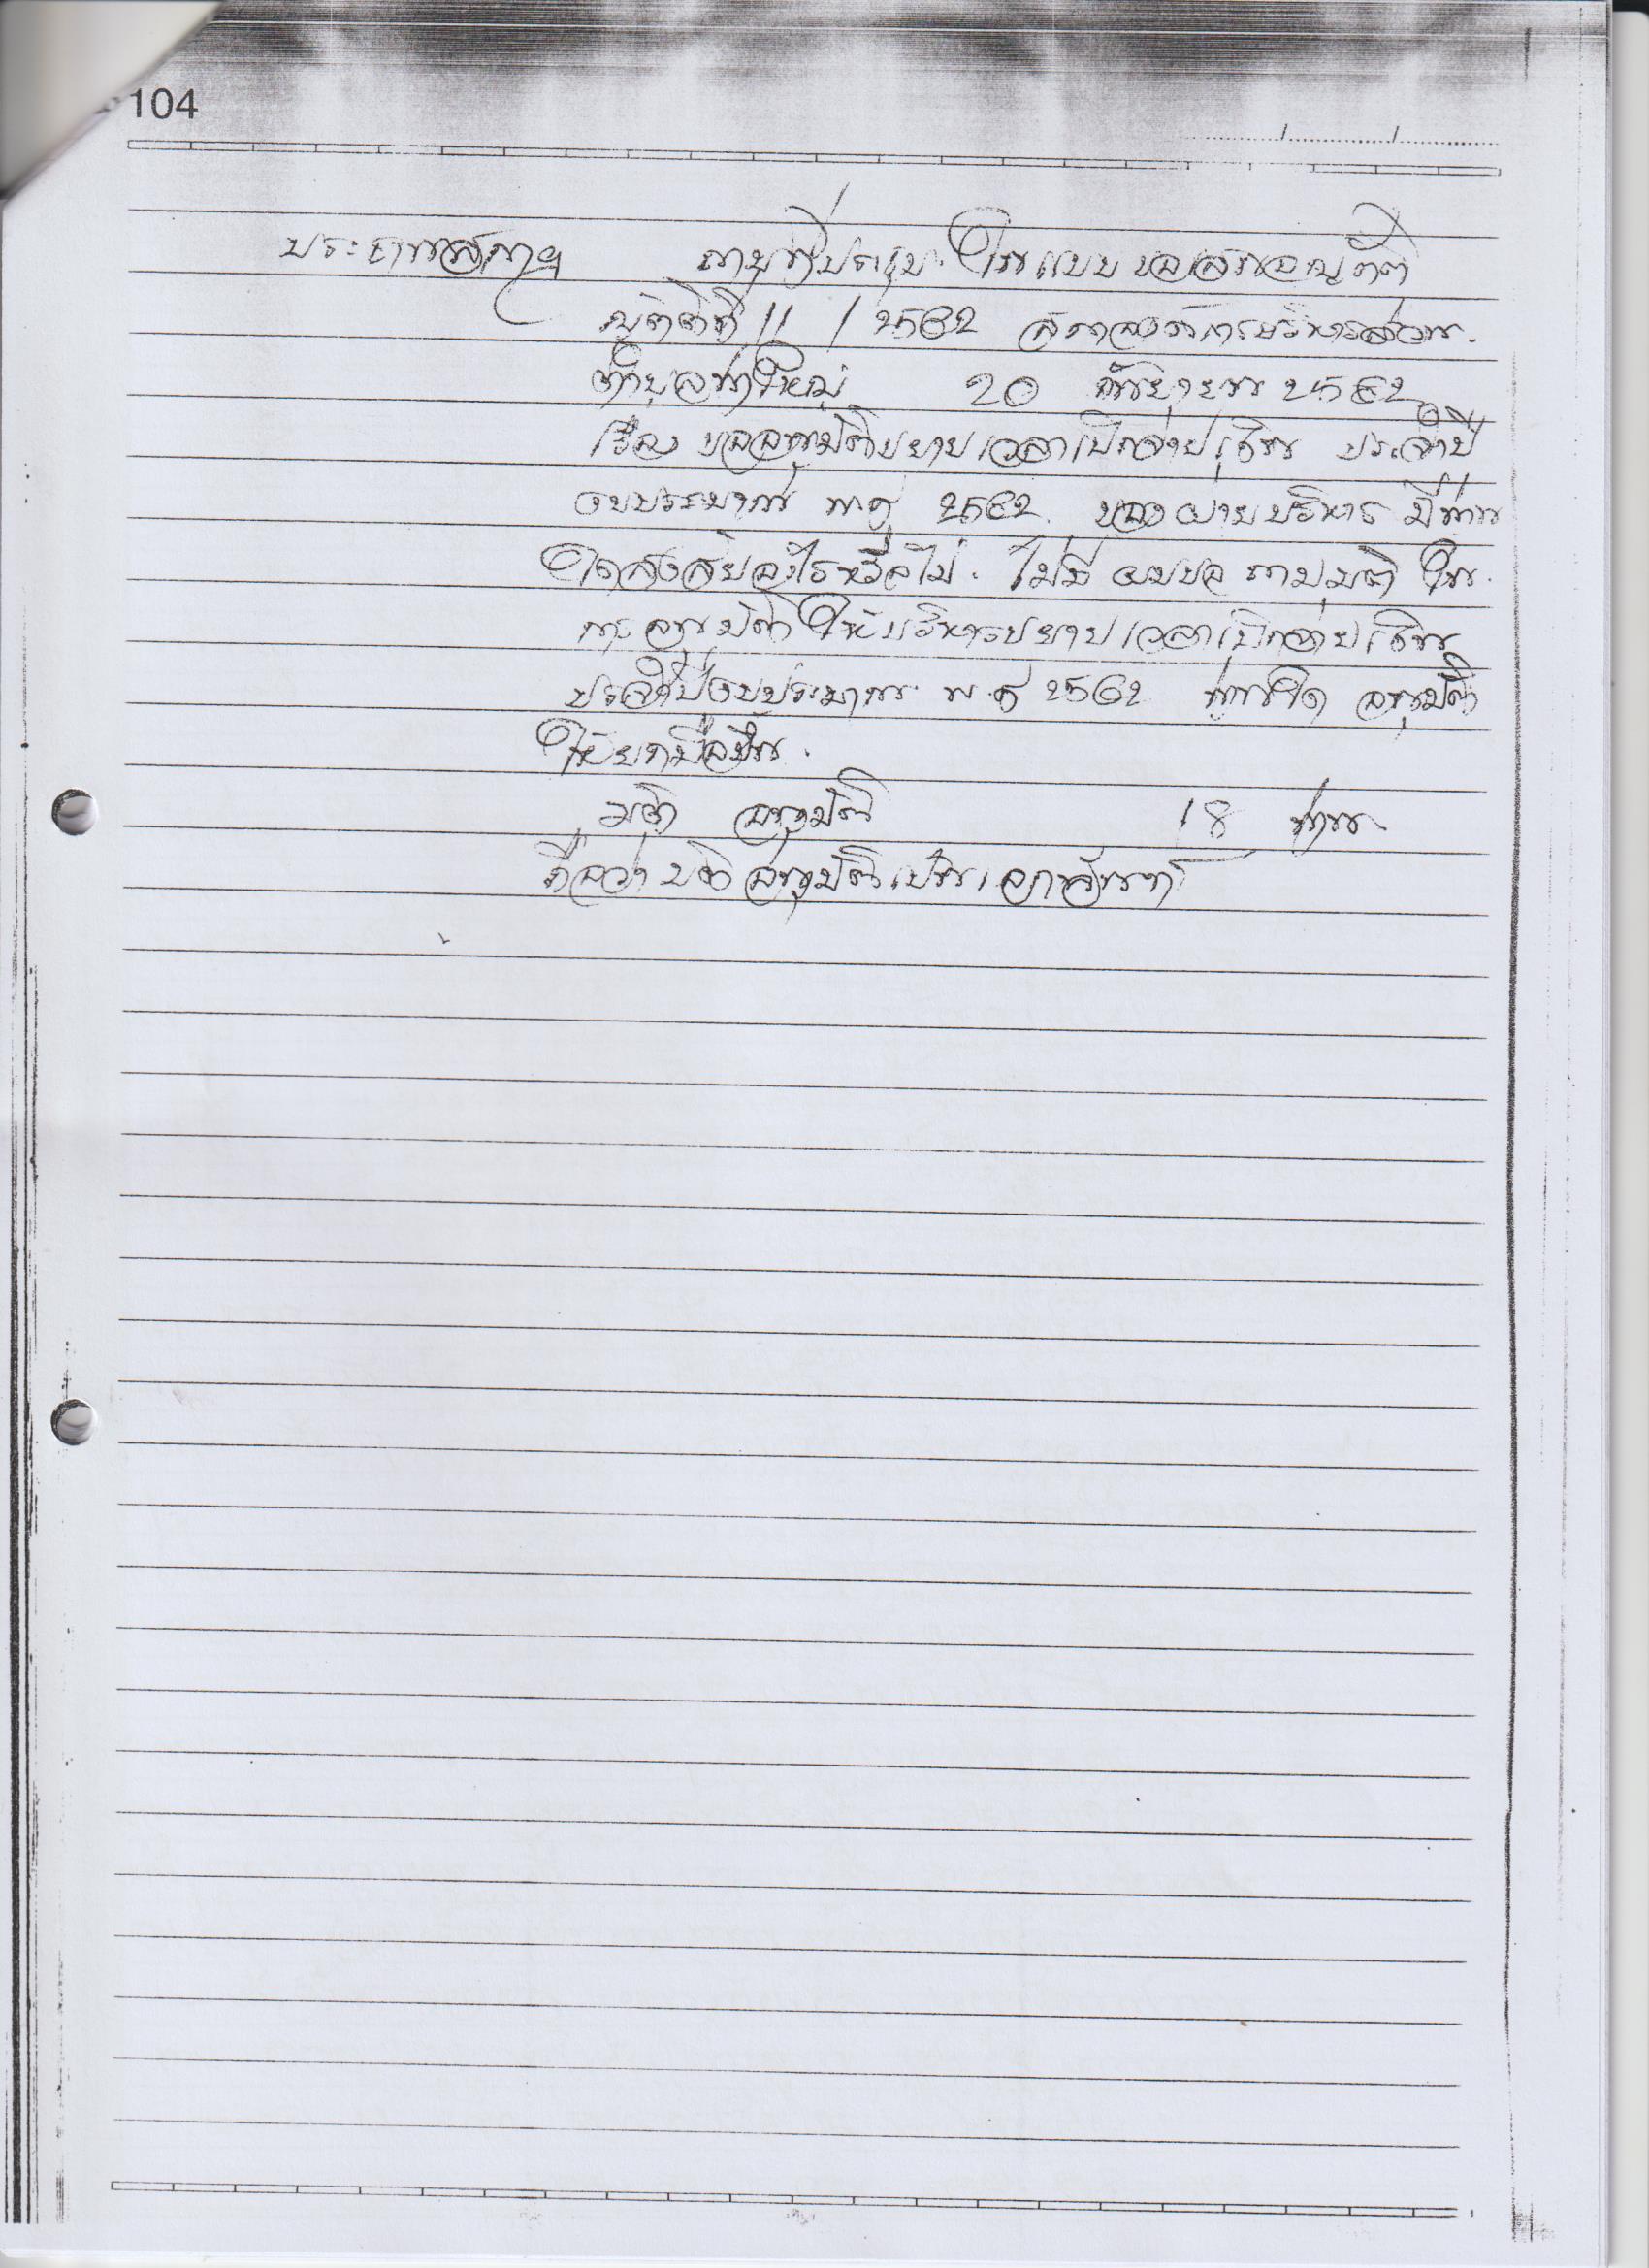 104
ประธานสภาฯ ถามที่ประชุม ในแบบขอเสนอญัตติ
ญัตติที่ 11 / 2562 สภาองค์การบริหารส่วน
ตำบลนาใหญ่ 20 กันยายน 2562
เรื่อง ขออนุมัติขยายเวลาเบิกจ่ายเงิน ประจำปี
งบประมาณ พ.ศ 2562 ของฝ่ายบริหาร มีท่าน
ใดสงสัยอะไรหรือไม่. ไม่มี ผมขอ ถามมติ ใน
การอนุมัติ ให้บริหารขยายเวลาเบิกจ่ายเงิน
ประจำปีงบประมาณ พ.ศ 2562 ท่านใด อนุมัติ
ให้ยกมือขึ้น.
มติ อนุมัติ 18 ท่าน
ถือว่า มติ อนุมัติเป็นเอกฉันท์